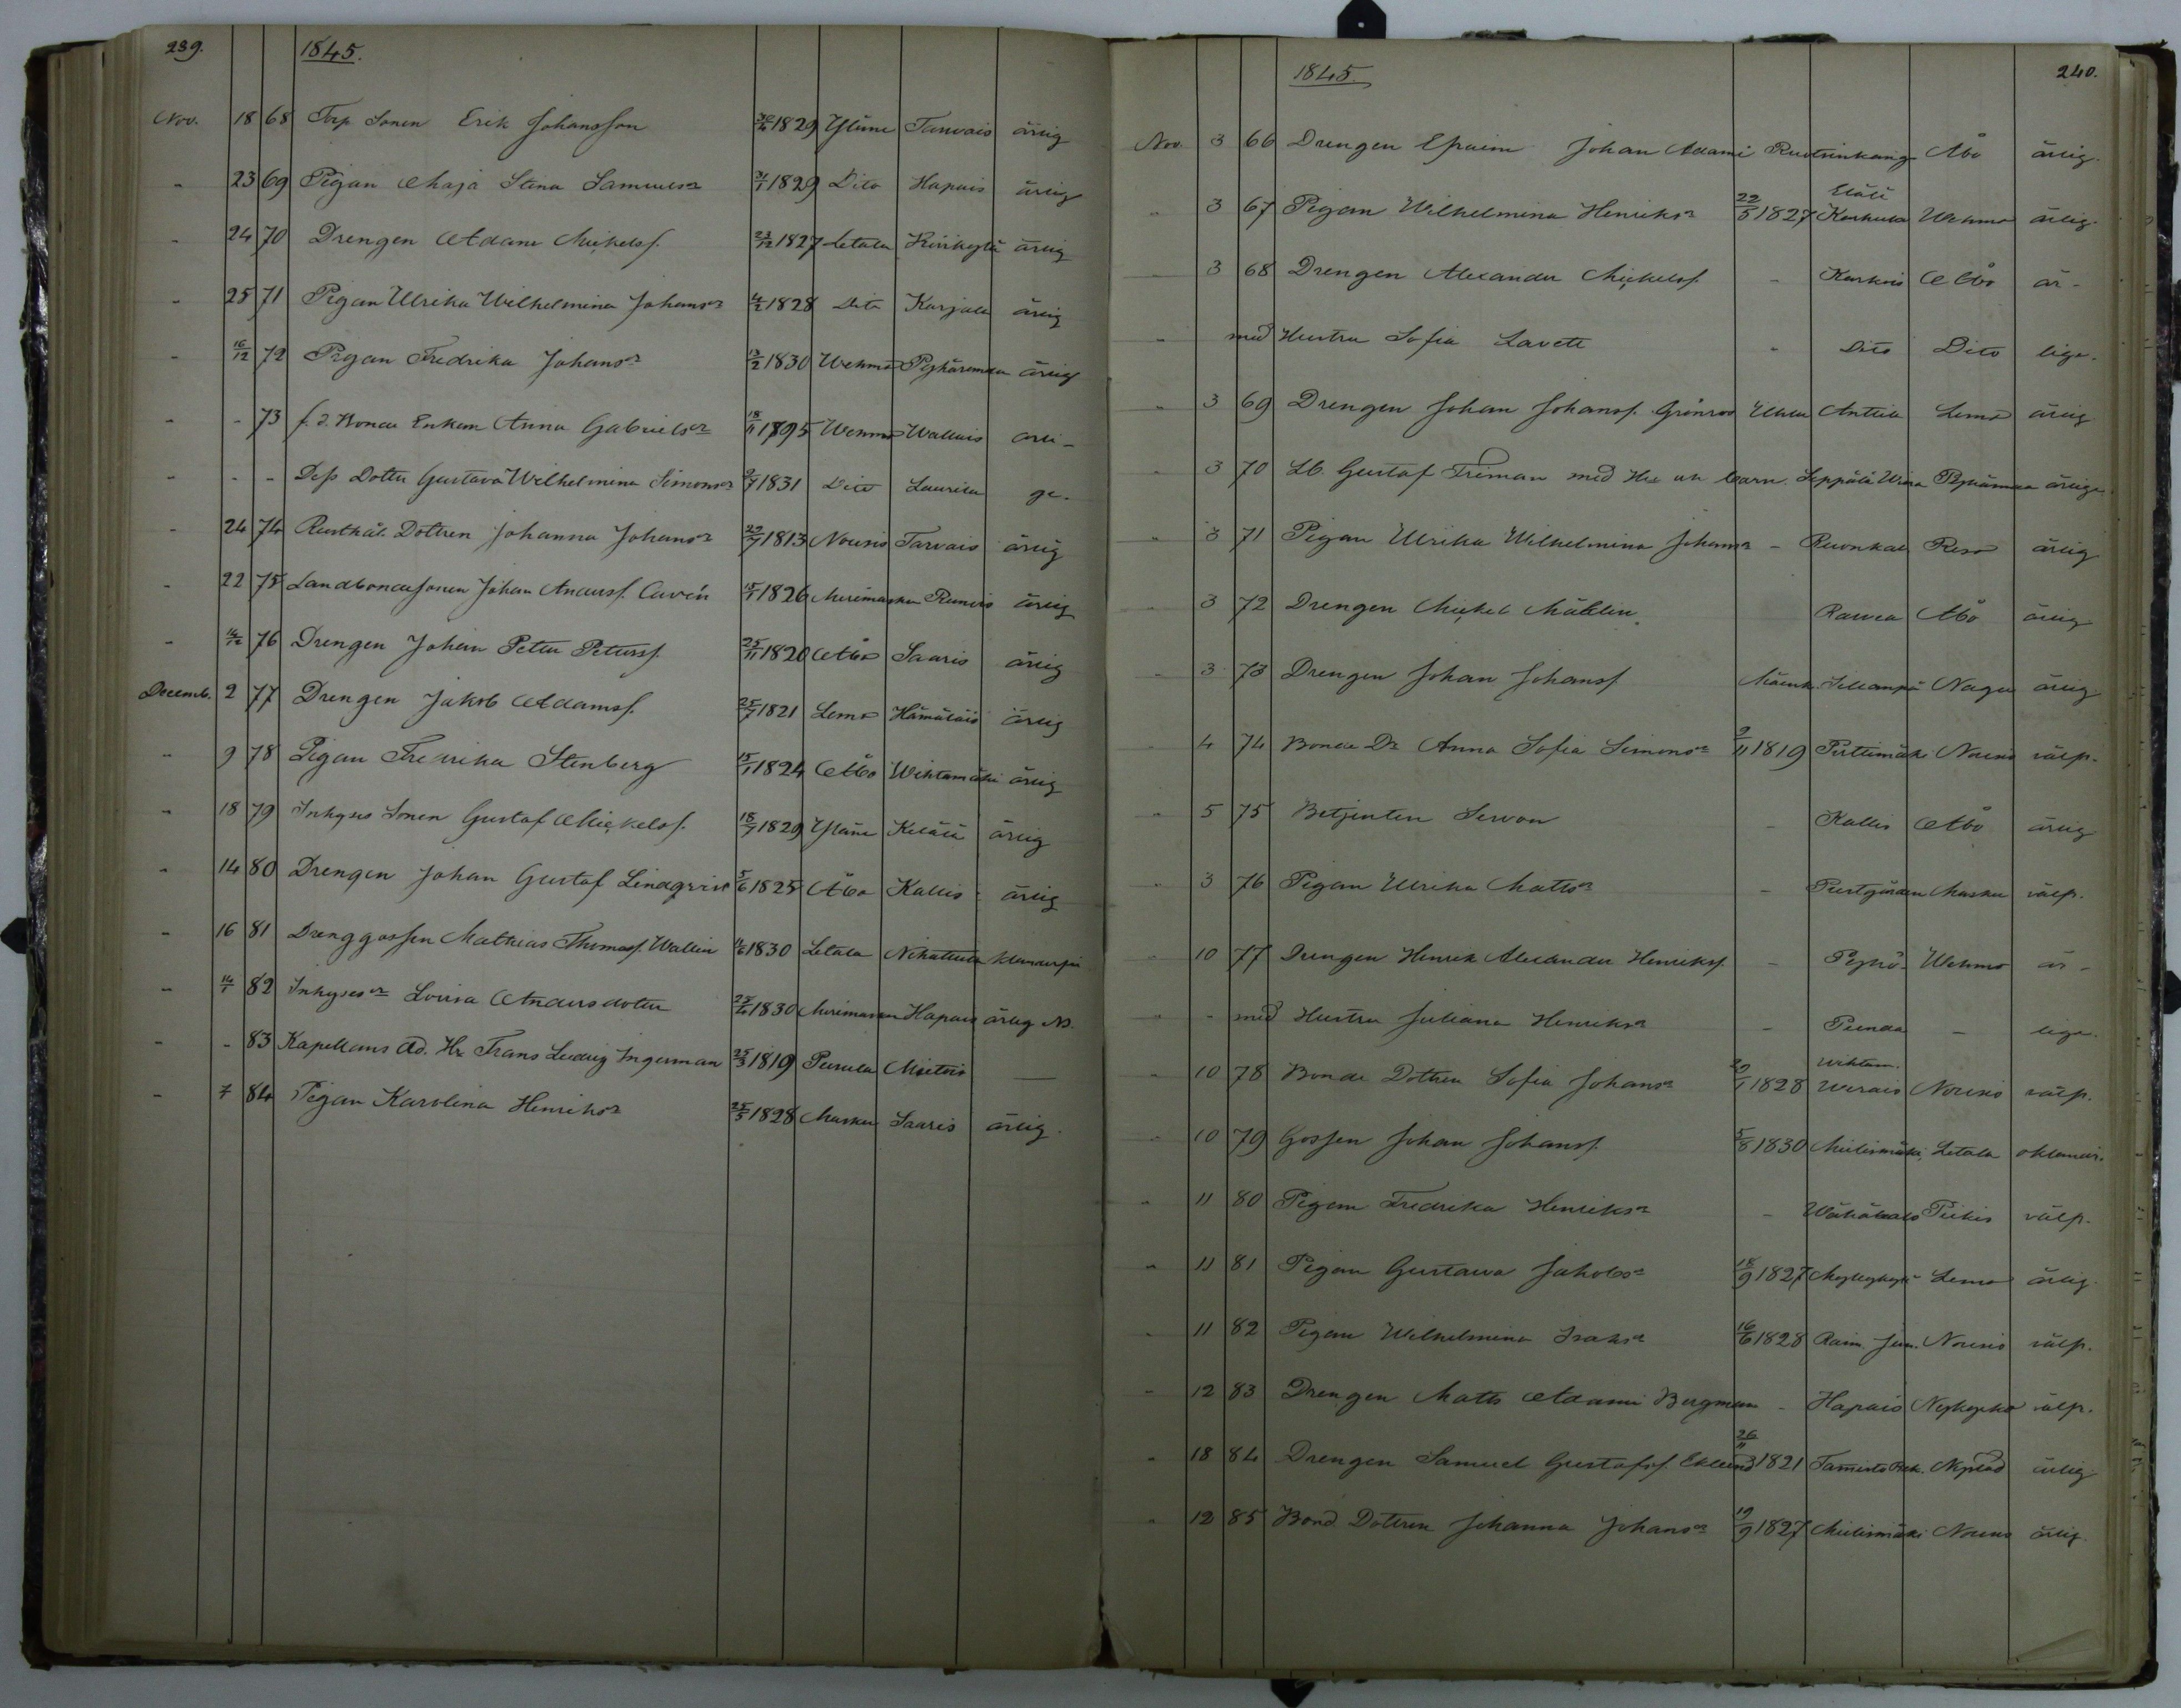 239. 1845.
Nov. 18 68 Torp Sonen Erik Johansson 1829 Yläne Tarvais ärlig
" 23 69 Pigan Maja Stina Samuelsdr 31/1 1829 Dito Hapais ärlig
" 24 70 Drengen Adam Mickelss. 23/12 1827 Letala ärlig
" 25 71 Pigan Ulrika Wilhelmina Johansdr 1828 Dito Karjala ärlig
" 16/12 72 Pigan Fredrika Johansdr 1830 Wehmo Pyhäranda ärlig
" - 73 f. d. Bonde Enkan Anna Gabrielsdr 18/11 1795 Wehmo Wallais ärli-
" - - Dess Dotter Gustava Wilhelmina Simonsdr 9/7 1831 Dito Laurila ge.
" 24 74 Rusthål. Dottren Johanna Johansdr 1813 Nousis Tarvais ärlig
" 22 75 Landbondesonen Johan Anderss. Cavén 1826 Merimasku ärlig
" 76 Drengen Johan Petter Peterss. 25/11 1820 Åbo Saaris ärlig
Decemb. 2 77 Drengen Jakob Adamss. 25/7 1821 Lemo Hämäläis ärlig
" 9 78 Pigan Fredrika Stenberg 15/1 1824 Åbo Wihtamäki ärlig
" 18 79 Inhyses Sonen Gustaf Mickelss. 18/7 1829 Yläne ärlig
" 14 80 Drengen Johan Gustaf Lindqvist 5/6 1825 Åbo Kallis ärlig
" 16 81 Drenggossen Mathias Thomass. Wallin 1830 Letala Nihattula klanderfri
" 82 Inhysesdr Lovisa Andersdotter 1830 Merimasku Hapais ärlig
" - 83 Kapellans Ad. Hr Frans Ludvig Ingerman 25/3 1819 Mietois —
" 7 84 Pigan Karolina Henriksdr 25/5 1828 Masku Saaris ärlig.
1845. 240.
Nov. 3 66 Drengen Efraim Johan Adami Åbo ärlig.
" 3 67 Pigan Wilhelmina Henriksdr 22/5 1827 Wehmo ärlig.
3 68 Drengen Alexander Mickelss. - Åbo är-
" med Hustru Sofia Lavett - Dito Dito lige.
" 3 69 Drengen Johan Johanss. Grönroos Anttila Lemo ärlig
" 3 70 Lb. Gustaf Friman med Hu och barn. Seppälä ärliga
" 3 71 Pigan Ulrika Wilhelmina Johansdr - Reso ärlig
3 72 Drengen Mickel Mählin. Åbo ärlig
3 73 Drengen Johan Johanss Nagu ärlig
" 4 74 Bonde Dr Anna Sofia Simonsdr 9/11 1819 Pirttimäki Nousis välf.
" 5 75 Betjenten Servon - Kallis Åbo ärlig
" 3 76 Pigan Ulrika Mattsdr - Prestgården Masku välf.
" 10 77 Drengen Henrik Alexander Henrikss. - Wehmo är-
" - med Hustru Juliana Henriksdr - - lige.
" 10 78 Bonde Dottren Sofia Johansdr 1828 Wihtam. Nousis välf.
" 10 79 Gossen Johan Johanss. 5/8 1830 Mielismäki Letala oklander.
" 11 80 Pigan Fredrika Henriksdr - Piikis välf.
" 11 81 Pigan Gustava Jakobsdr 18/9 1827 Lemo ärlig.
" 11 82 Pigan Wilhelmina Isaksdr 16/6 1828 Nousis välf.
" 12 83 Drengen Matts Adami Bergman - Hapais Nykyrko välf.
" 18 84 Drengen Samuel Gustafss. Eklund 26/11 1821 Nystad ärlig
" 12 85 Bond. Dottren Johanna Johansdr 19/9 1827 Mielismäki Nousis ärlig.